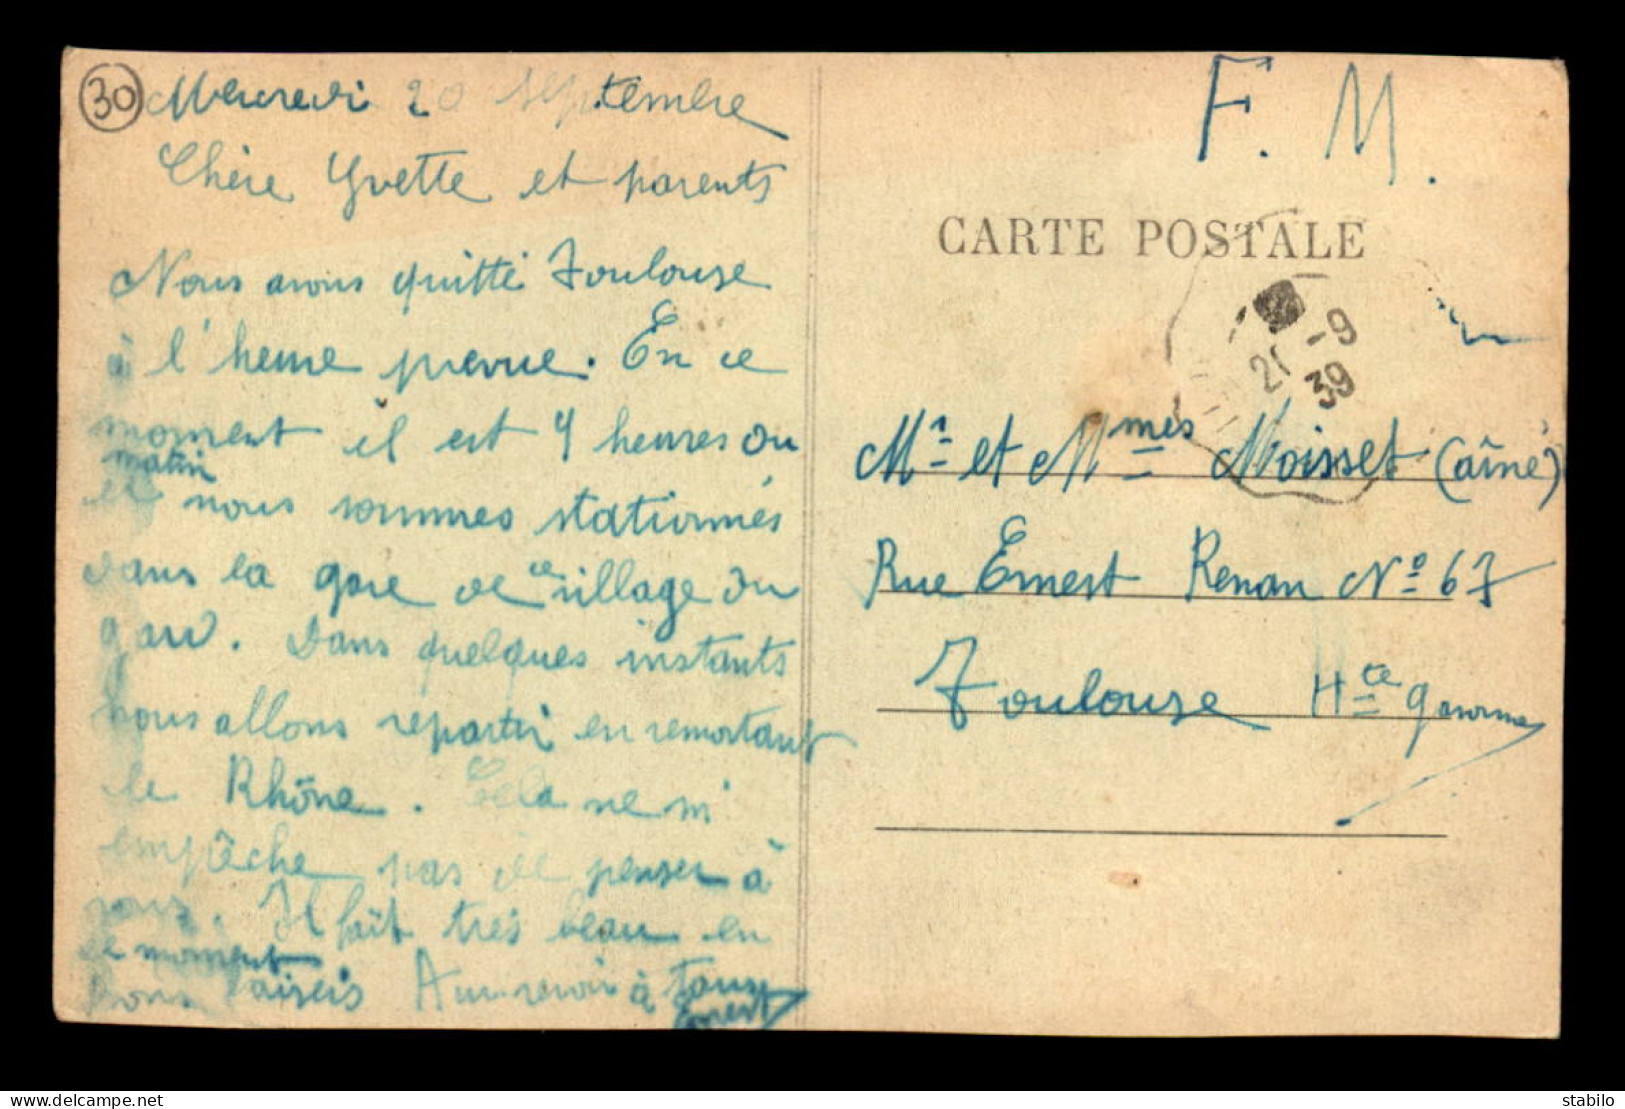 30
Mercredi 20 Septembre
Chère Yvette et parents
Nous avons quitté Toulouse
à l'heure prevue. En ce
moment il est 9 heures du
matin
et nous sommes stationnés
dans la gare de ce village du
gard. Dans quelques instants
nous allons repartir en remontant
le Rhône. Cela ne m'
empêche pas de penser à
vous. Il fait très beau en
ce moment
Bons baisers Au revoir à tous
Ernest
F. M.
CARTE POSTALE
21 -9
39
Mr et Mmes Moisset (aîné)
Rue Ernest Renan No 67
Toulouse Hte garonne
delcampe.net
stabilo